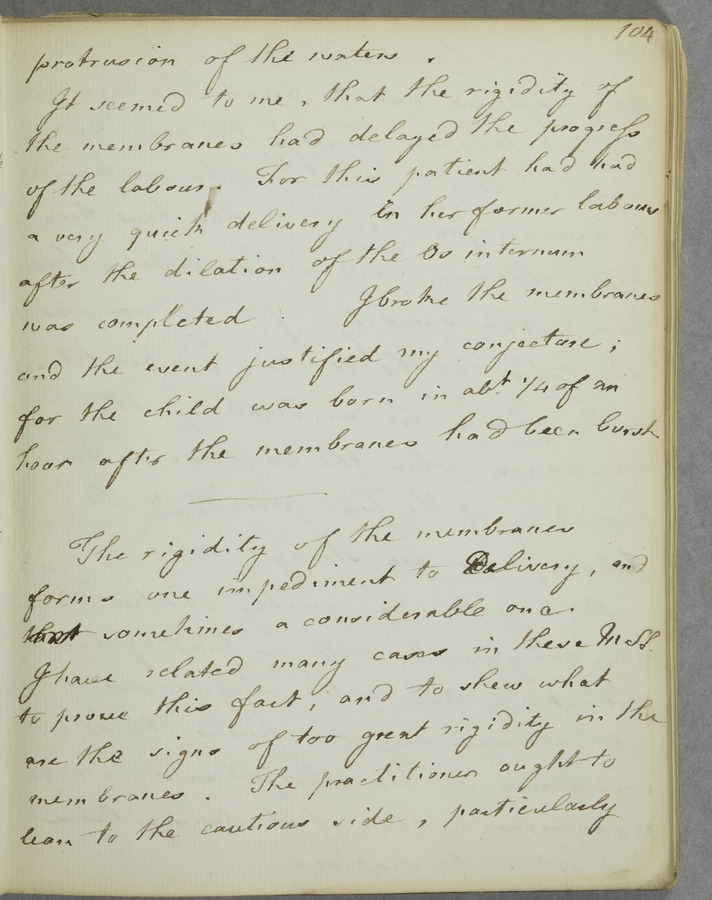 104
protrusion of the waters.
It seemed to me, that the rigidity of
the membranes had delayed the progress
of the labour. For this patient had had
a very quick delivery in her former labours
after the dilation of the Os internum
was completed. I broke the membranes
and the event justified my conjecture;
for the child was born in abt. 1/4 of an
hour after the membranes had been burst
The rigidity of the membranes
forms one impediment to Delivery, and
sometimes a considerable one.
I have related many cases in these MSS.
to prove this fact, and to shew what
are the signs of too great rigidity in the
membranes. The practitioner ought to
lean to the cautious side, particularly